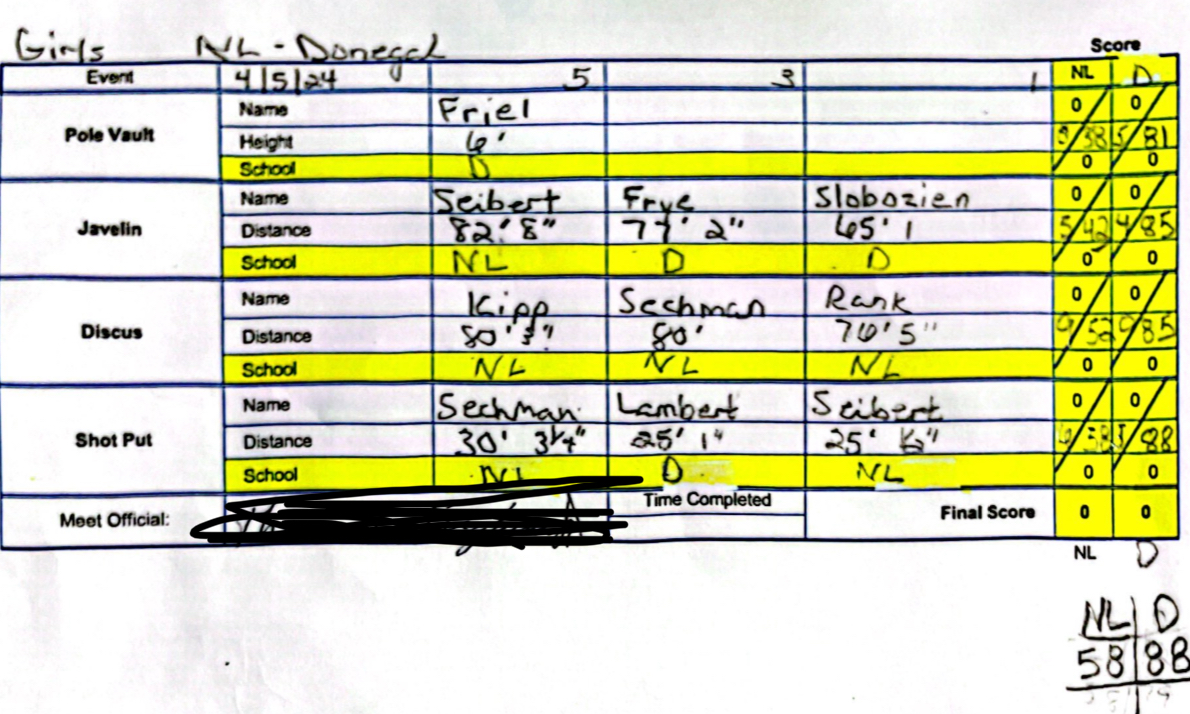 Girls NL - Donegal
Score
Event 4/5/24 5 3 1 NL D
Pole Vault
Name Friel 0 0
Height 6' 38 5 81
School D 0 0
Javelin
Name Seibert Frye Slobozien 0 0
Distance 82' 8" 2" 65' 1 5 42 4 85
School NL D D 0 0
Discus
Name Kipp Sechman Rank 0 0
Distance 80' 3" 80' 76' 5" 52 85
School NL NL NL 0 0
Shot Put
Name Sechman Lambert Seibert 0 0
Distance 30' 3¼" 25' 1" 25' ½" 58 88
School NL D NL 0 0
Meet Official: Time Completed Final Score 0 0
NL D
NL D
58 88